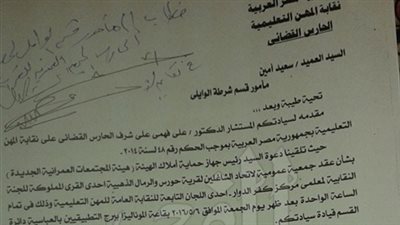 مصر العربية
نقابة المهن التعليمية
الحارس القضائى
السيد العميد / سعيد أمين
مأمور قسم شرطة الوايلى
تحية طيبة وبعد ...
مقدمه لسيادتكم المستشار الدكتور / على فهمى على شرف الحارس القضائى على نقابة المهن
التعليمية بجمهورية مصر العربية بموجب الحكم رقم ٤٨ لسنة ٢٠١٤.
حيث تلقينا دعوة السيد رئيس جهاز حماية أملاك الهيئة ( هيئة المجتمعات العمرانية الجديدة )
بشأن عقد جمعية عمومية لاتحاد الشاغلين لقرية حورس والرمال الذهبية احدى القرى المملوكة للجنة
النقابية لمعلمى مركز كفر الدوار- احدى اللجان التابعة للنقابة العامة للمهن التعليمية وذلك فى تمام
الساعة الواحدة بعد ظهر يوم الجمعة الموافق ٢٠١٦/٥/٦ بقاعة الموناليزا ببرج التطبيقيين بالعباسية دائرة
القسم قيادة سيادتكم.